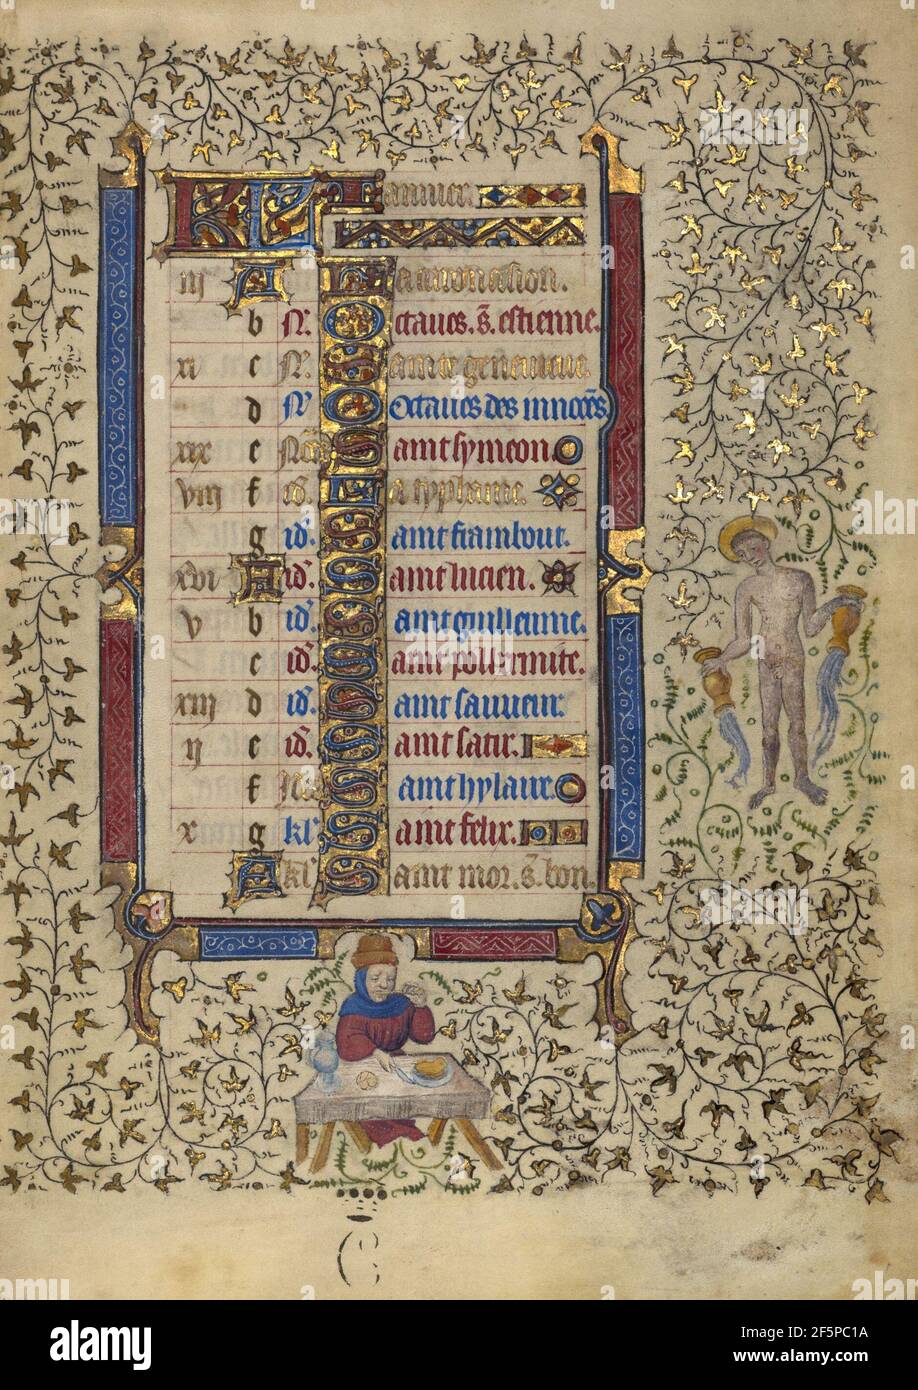 KL Januier.
iij A La circoncision.
b N. Octaues. s. estienne.
xi c N. Sainte geneuieue.
d N. Octaues des innocens
xix e Non. Saint symeon.
viij f id. La typhaine.
g id. Saint frambout.
xvi A id. Saint lucien.
v b id. Saint guillaume.
c id. Saint pol hermite.
xiij d id. Saint sauueur.
ij e id. Saint satir.
f Saint hylaire.
x g kl. Saint felix.
A kl. Saint mor. s. bon.
alamy
Image ID: 2F5PC1A
www.alamy.com